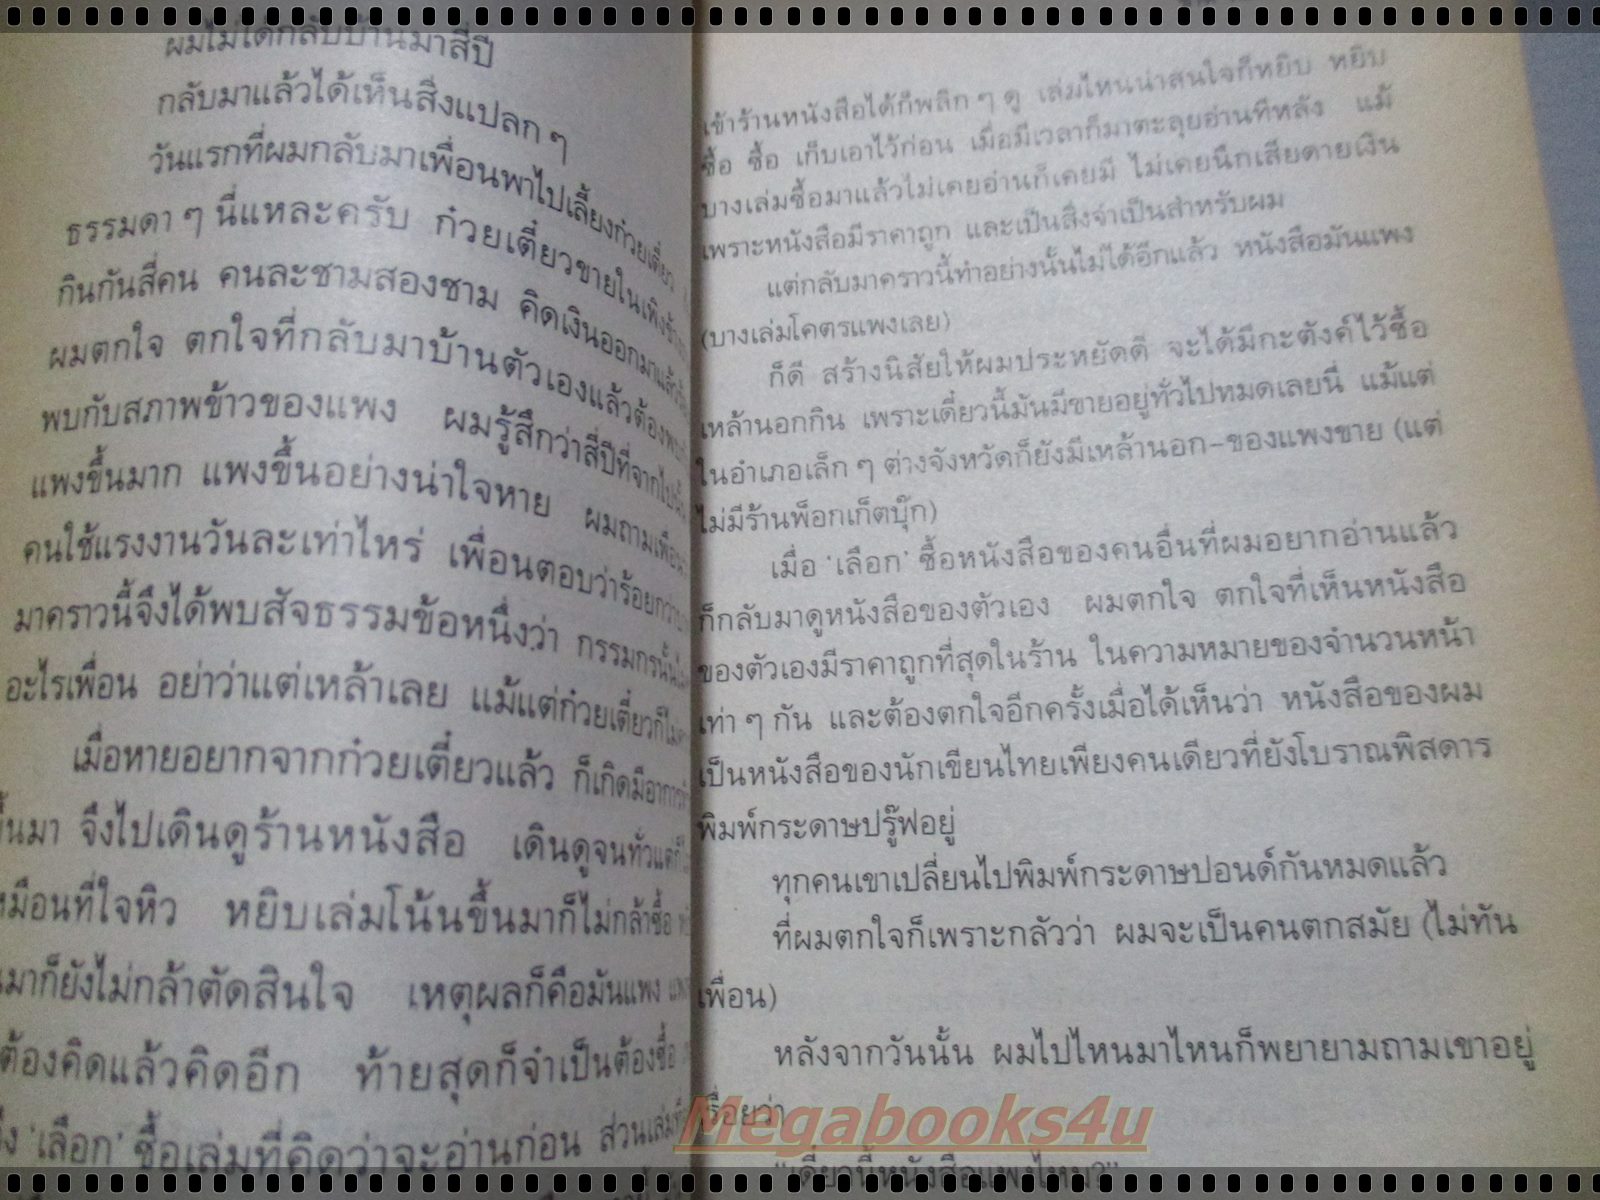 ผมไม่ได้กลับบ้านมาสี่ปี
กลับมาแล้วได้เห็นสิ่งแปลก ๆ
วันแรกที่ผมกลับมาเพื่อนพาไปเลี้ยงก๋วยเตี๋ยว
ธรรมดา ๆ นี่แหละครับ ก๋วยเตี๋ยวขายในเพิงข้าง
กินกันสี่คน คนละชามสองชาม คิดเงินออกมาแล้ว
ผมตกใจ ตกใจที่กลับมาบ้านตัวเองแล้วต้อง
พบกับสภาพข้าวของแพง ผมรู้สึกว่าสี่ปีที่จากไปนั้น
แพงขึ้นมาก แพงขึ้นอย่างน่าใจหาย ผมถามเพื่อน
คนใช้แรงงานวันละเท่าไหร่ เพื่อนตอบว่าร้อยกว่า
มาคราวนี้จึงได้พบสัจธรรมข้อหนึ่งว่า กรรมกรนั้น
อะไรเพื่อน อย่าว่าแต่เหล้าเลย แม้แต่ก๋วยเตี๋ยวก็
เมื่อหายอยากจากก๋วยเตี๋ยวแล้ว ก็เกิดมีอาการ
ขึ้นมา จึงไปเดินดูร้านหนังสือ เดินดูจนทั่วแต่ก็
เหมือนที่ใจหิว หยิบเล่มโน้นขึ้นมาก็ไม่กล้าซื้อ
มาก็ยังไม่กล้าตัดสินใจ เหตุผลก็คือมันแพง
ต้องคิดแล้วคิดอีก ท้ายสุดก็จำเป็นต้องซื้อ
'เลือก' ซื้อเล่มที่คิดว่าจะอ่านก่อน ส่วนเล่ม
เข้าร้านหนังสือได้ก็พลิก ๆ ดู เล่มไหนน่าสนใจก็หยิบ หยิบ
ซื้อ ซื้อ เก็บเอาไว้ก่อน เมื่อมีเวลาก็มาตะลุยอ่านทีหลัง แม้
บางเล่มซื้อมาแล้วไม่เคยอ่านก็เคยมี ไม่เคยนึกเสียดายเงิน
เพราะหนังสือมีราคาถูก และเป็นสิ่งจำเป็นสำหรับผม
แต่กลับมาคราวนี้ทำอย่างนั้นไม่ได้อีกแล้ว หนังสือมันแพง
(บางเล่มโคตรแพงเลย)
ก็ดี สร้างนิสัยให้ผมประหยัดดี จะได้มีกะตังค์ไว้ซื้อ
เหล้านอกกิน เพราะเดี๋ยวนี้มันมีขายอยู่ทั่วไปหมดเลยนี่ แม้แต่
ในอำเภอเล็ก ๆ ต่างจังหวัดก็ยังมีเหล้านอก-ของแพงขาย (แต่
ไม่มีร้านพ็อกเก็ตบุ๊ก)
เมื่อ 'เลือก' ซื้อหนังสือของคนอื่นที่ผมอยากอ่านแล้ว
ก็กลับมาดูหนังสือของตัวเอง ผมตกใจ ตกใจที่เห็นหนังสือ
ของตัวเองมีราคาถูกที่สุดในร้าน ในความหมายของจำนวนหน้า
เท่า ๆ กัน และต้องตกใจอีกครั้งเมื่อได้เห็นว่า หนังสือของผม
เป็นหนังสือของนักเขียนไทยเพียงคนเดียวที่ยังโบราณพิสดาร
พิมพ์กระดาษปรู๊ฟอยู่
ทุกคนเขาเปลี่ยนไปพิมพ์กระดาษปอนด์กันหมดแล้ว
ที่ผมตกใจก็เพราะกลัวว่า ผมจะเป็นคนตกสมัย (ไม่ทัน
เพื่อน)
หลังจากวันนั้น ผมไปไหนมาไหนก็พยายามถามเขาอยู่
เรื่อยว่า
"เดี๋ยวนี้หนังสือแพงไหม?"
Megabooks4u